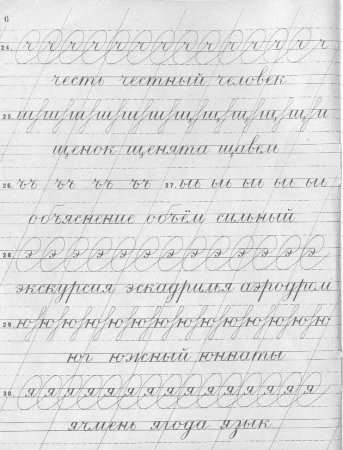 6
24. ч ч ч ч ч ч ч ч ч ч ч ч ч ч
честь честный человек
25. щ щ щ щ щ щ щ щ щ щ щ щ
щенок щенята щавель
26. ъъ ъъ ъъ ъъ 27. ыь ыь ыь ыь ыь
объяснение объём сильный
28. э э э э э э э э э э э э э э
экскурсия эскадрилья аэродром
29. ю ю ю ю ю ю ю ю ю ю ю ю ю ю
юг южный юннаты
30. я я я я я я я я я я я я я я
ячмень ягода язык